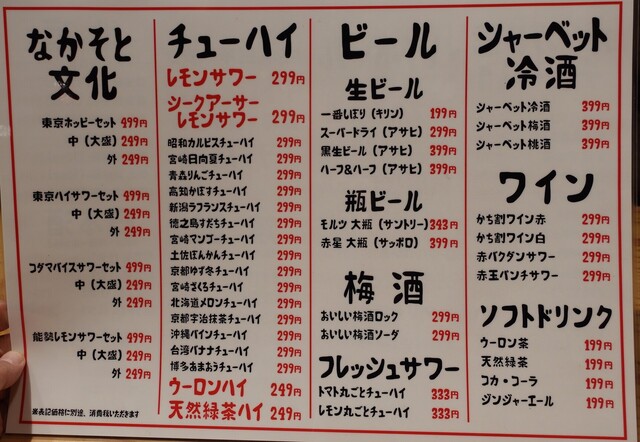 なかそと
文化
東京ホッピーセット 499円
中(大盛) 249円
外 249円
東京ハイサワーセット 499円
中(大盛) 249円
外 249円
コダマバイスサワーセット 499円
中(大盛) 249円
外 249円
能勢レモンサワーセット 499円
中(大盛) 249円
外 249円
※表記価格に別途、消費税いただきます
チューハイ
レモンサワー 299円
シークアーサー
レモンサワー 299円
昭和カルピスチューハイ 299円
宮崎日向夏チューハイ 299円
青森りんごチューハイ 299円
高知かぼすチューハイ 299円
新潟ラフランスチューハイ 299円
徳之島すだちチューハイ 299円
宮崎マンゴーチューハイ 299円
土佐ぽんかんチューハイ 299円
京都ゆず冬チューハイ 299円
宮崎ざくろチューハイ 299円
北海道メロンチューハイ 299円
京都宇治抹茶チューハイ 299円
沖縄パインチューハイ 299円
台湾バナナチューハイ 299円
博多あまおうチューハイ 299円
ウーロンハイ 249円
天然緑茶ハイ 249円
ビール
生ビール
一番しぼり(キリン) 199円
スーパードライ(アサヒ) 299円
黒生ビール(アサヒ) 399円
ハーフ&ハーフ(アサヒ) 399円
瓶ビール
モルツ 大瓶(サントリー) 343円
赤星 大瓶(サッポロ) 399円
梅酒
おいしい梅酒ロック 299円
おいしい梅酒ソーダ 299円
フレッシュサワー
トマト丸ごとチューハイ 333円
レモン丸ごとチューハイ 333円
シャーベット
冷酒
シャーベット冷酒 399円
シャーベット梅酒 399円
シャーベット桃酒 399円
ワイン
かち割ワイン赤 299円
かち割ワイン白 299円
赤バクダンサワー 299円
赤玉パンチサワー 299円
ソフトドリンク
ウーロン茶 199円
天然緑茶 199円
コカ・コーラ 199円
ジンジャーエール 199円